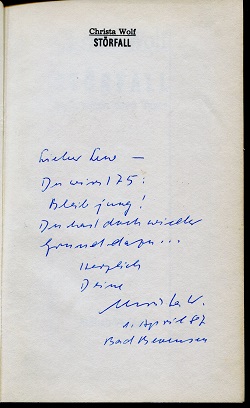 Christa Wolf
STÖRFALL
Lieber Lew —
Du wirst 75!
Bleib jung!
Du hast doch wieder
Grund dazu...
Herzlich
Deine
Christa W.
1. April 87
Bad Bevensen